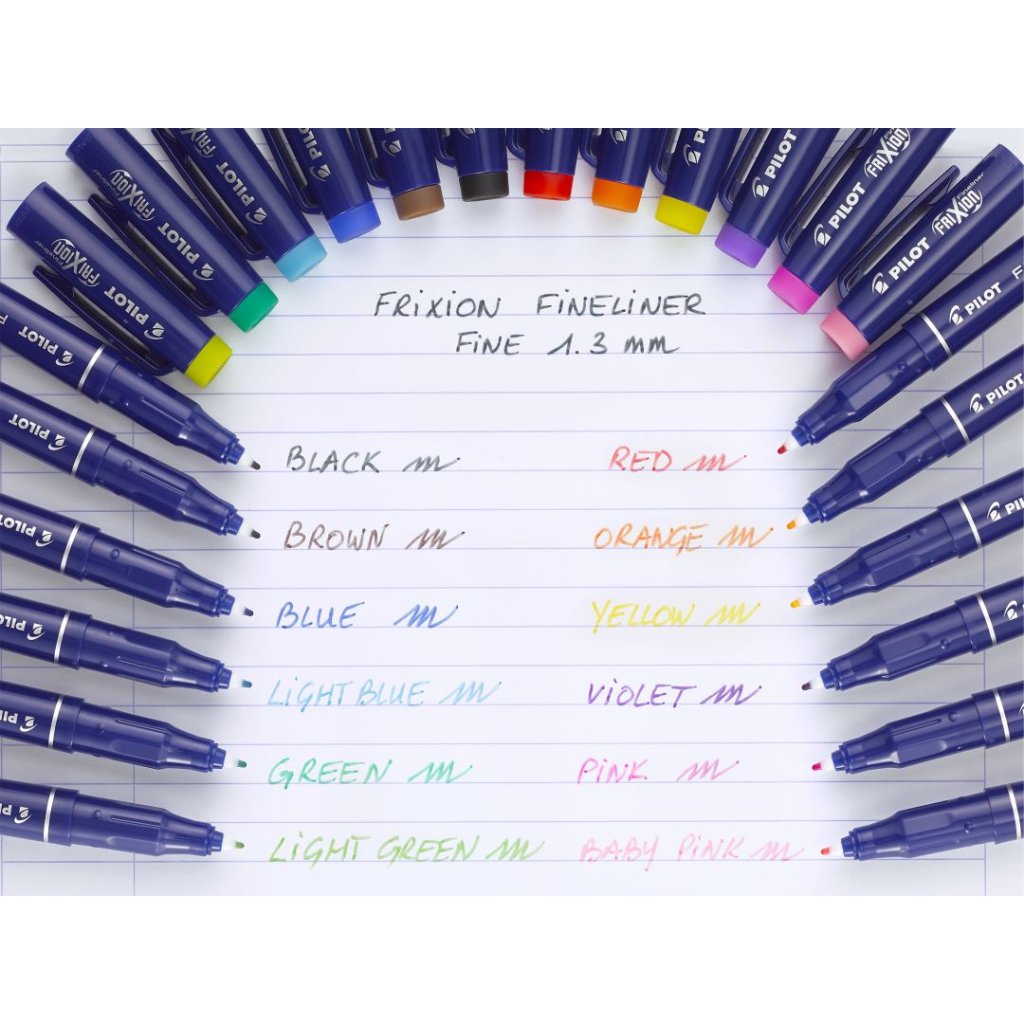 FRIXION FINELINER
FINE 1.3 mm
BLACK
RED
BROWN
ORANGE
BLUE
YELLOW
LIGHT BLUE
VIOLET
GREEN
PINK
LIGHT GREEN
BABY PINK
FRIXION Fineliner
PILOT
FRIXION Fineliner
PILOT
FRIXION
PILOT
PILOT
PILOT
PILOT
FRIXION
PILOT
FRIXION Fineliner
PILOT
PILOT
PILOT
PILOT
PILOT
PILOT
PILOT
PILOT